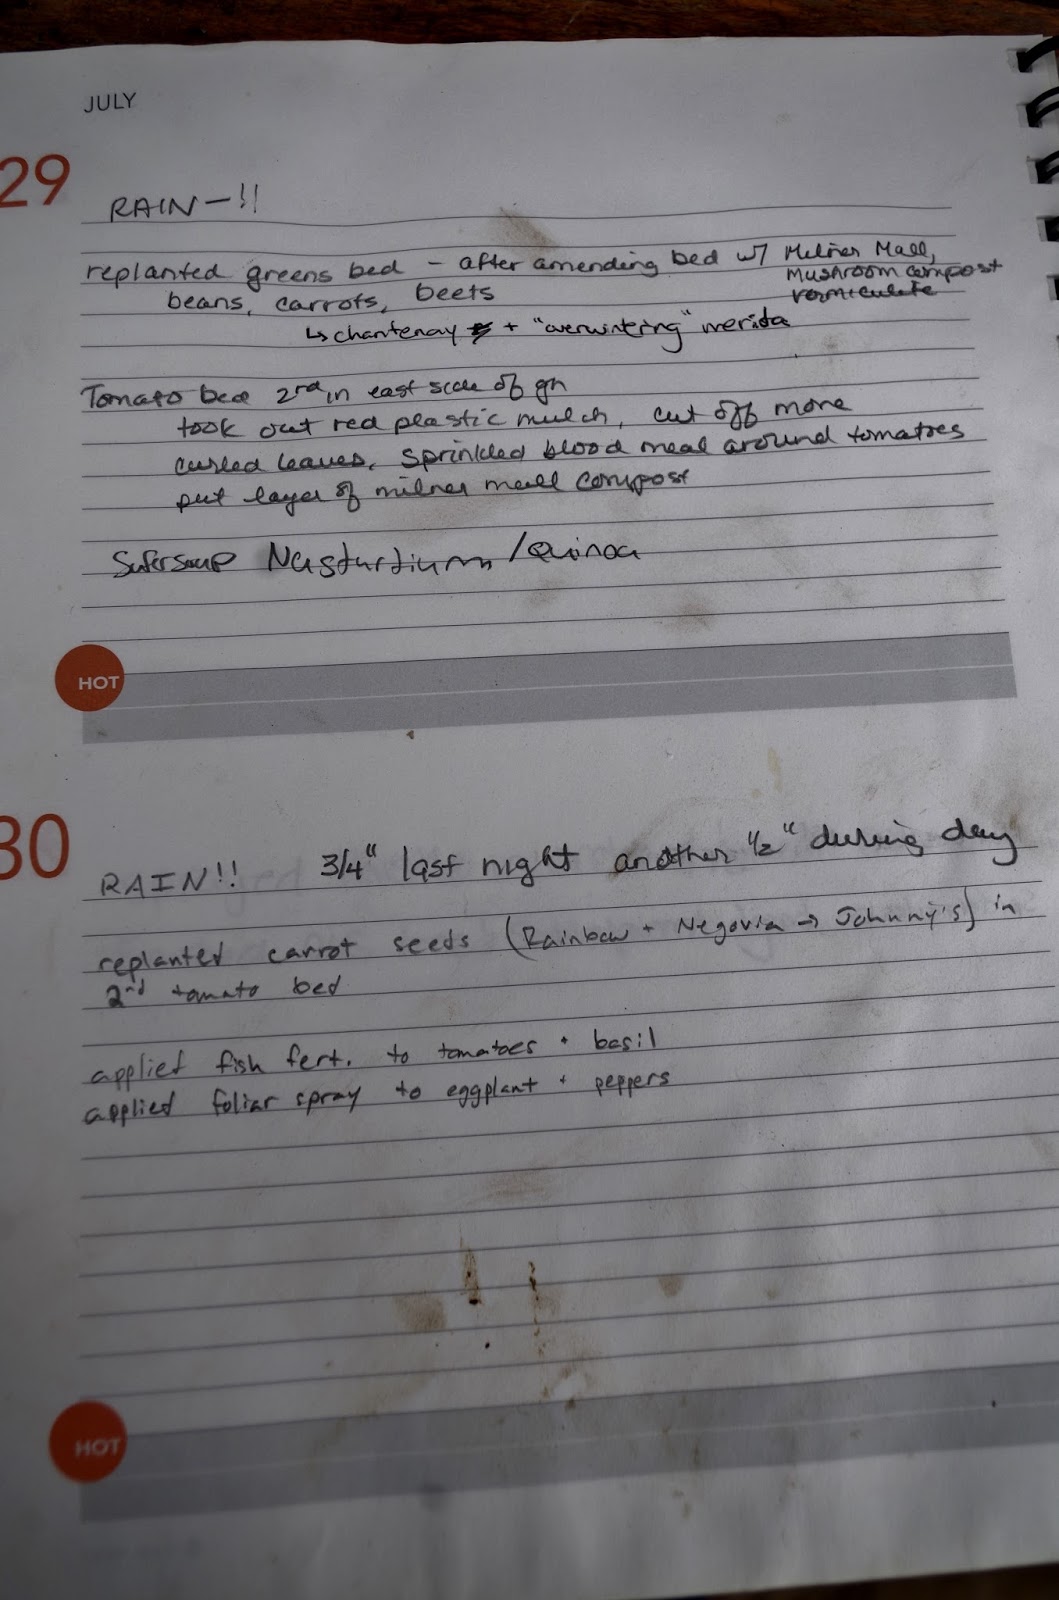 JULY
29
RAIN—!!
replanted greens bed – after amending bed w/ Milner Mall,
mushroom compost
vermiculite
beans, carrots, beets
↳ chantenay + "overwintering" merida
Tomato bed 2nd in east side of gh
took out red plastic mulch, cut off more
curled leaves, sprinkled blood meal around tomatoes
put layer of milner mall compost
Supersoup Nasturtium/Quinoa
HOT
30
RAIN!! 3/4" last night another 1/2" during day
replanted carrot seeds (Rainbow + Negovia → Johnny's) in
2nd tomato bed
applied fish fert. to tomatoes + basil
applied foliar spray to eggplant + peppers
HOT